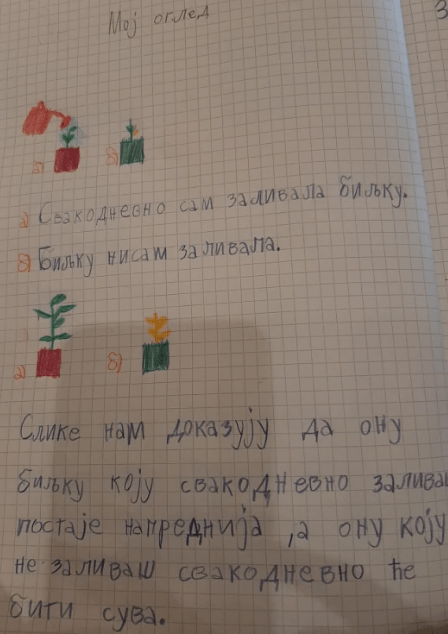 Мој оглед
З
а) б)
а) Свакодневно сам заливала биљку.
б) Биљку нисам заливала.
а) б)
Слике нам доказују да ону
биљку коју свакодневно залива
постаје напреднија ,а ону коју
не заливаш свакодневно ће
бити сува.